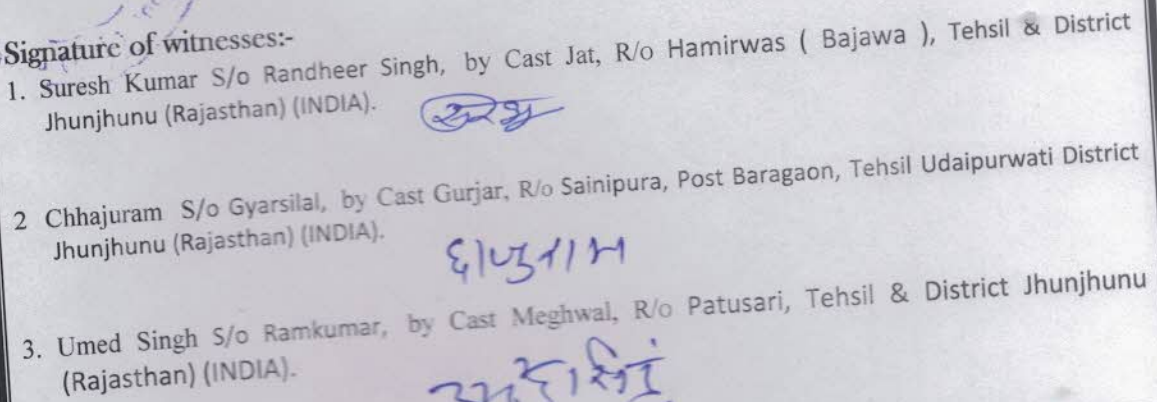 Signature of witnesses:-
1. Suresh Kumar S/o Randheer Singh, by Cast Jat, R/o Hamirwas ( Bajawa ), Tehsil & District
Jhunjhunu (Rajasthan) (INDIA).
2 Chhajuram S/o Gyarsilal, by Cast Gurjar, R/o Sainipura, Post Baragaon, Tehsil Udaipurwati District
Jhunjhunu (Rajasthan) (INDIA).
छाजुराम
3. Umed Singh S/o Ramkumar, by Cast Meghwal, R/o Patusari, Tehsil & District Jhunjhunu
(Rajasthan) (INDIA).